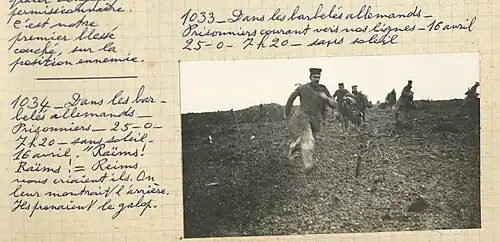 permissionnaire.
C'est notre
premier blessé
couché, sur la
position ennemie.
1034 _ Dans les bar-
belés allemands _
Prisonniers _ 25-0-
7h20 - sans soleil,
16 avril. "Raïms!
Raïms! = Reims
nous criaient ils. On
leur montrait l'arrière.
Ils prenaient le galop.
1033 _ Dans les barbelés allemands _
Prisonniers courant vers nos lignes - 16 avril
25-0- 7h20 - sans soleil